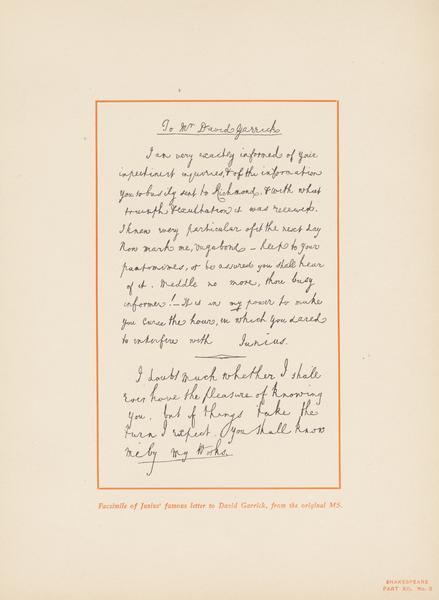 To Mr David Garrick
I am very exactly informed of your
impertinent inquiries, & of the information
you so busily sent to Richmond, & with what
triumph & exultation it was received.
I knew every particular of it the next day
Now mark me, vagabond — keep to your
pantomimes, or be assured you shall hear
of it. Meddle no more, thou busy
informer! — It is in my power to make
you curse the hour, in which you dared
to interfere with Junius.
I doubt much whether I shall
ever have the pleasure of knowing
you. but if things take the
turn I expect. you shall know
me by my Works.
Facsimile of Junius' famous letter to David Garrick, from the original MS.
SHAKESPEARE
PART XII. No. 3